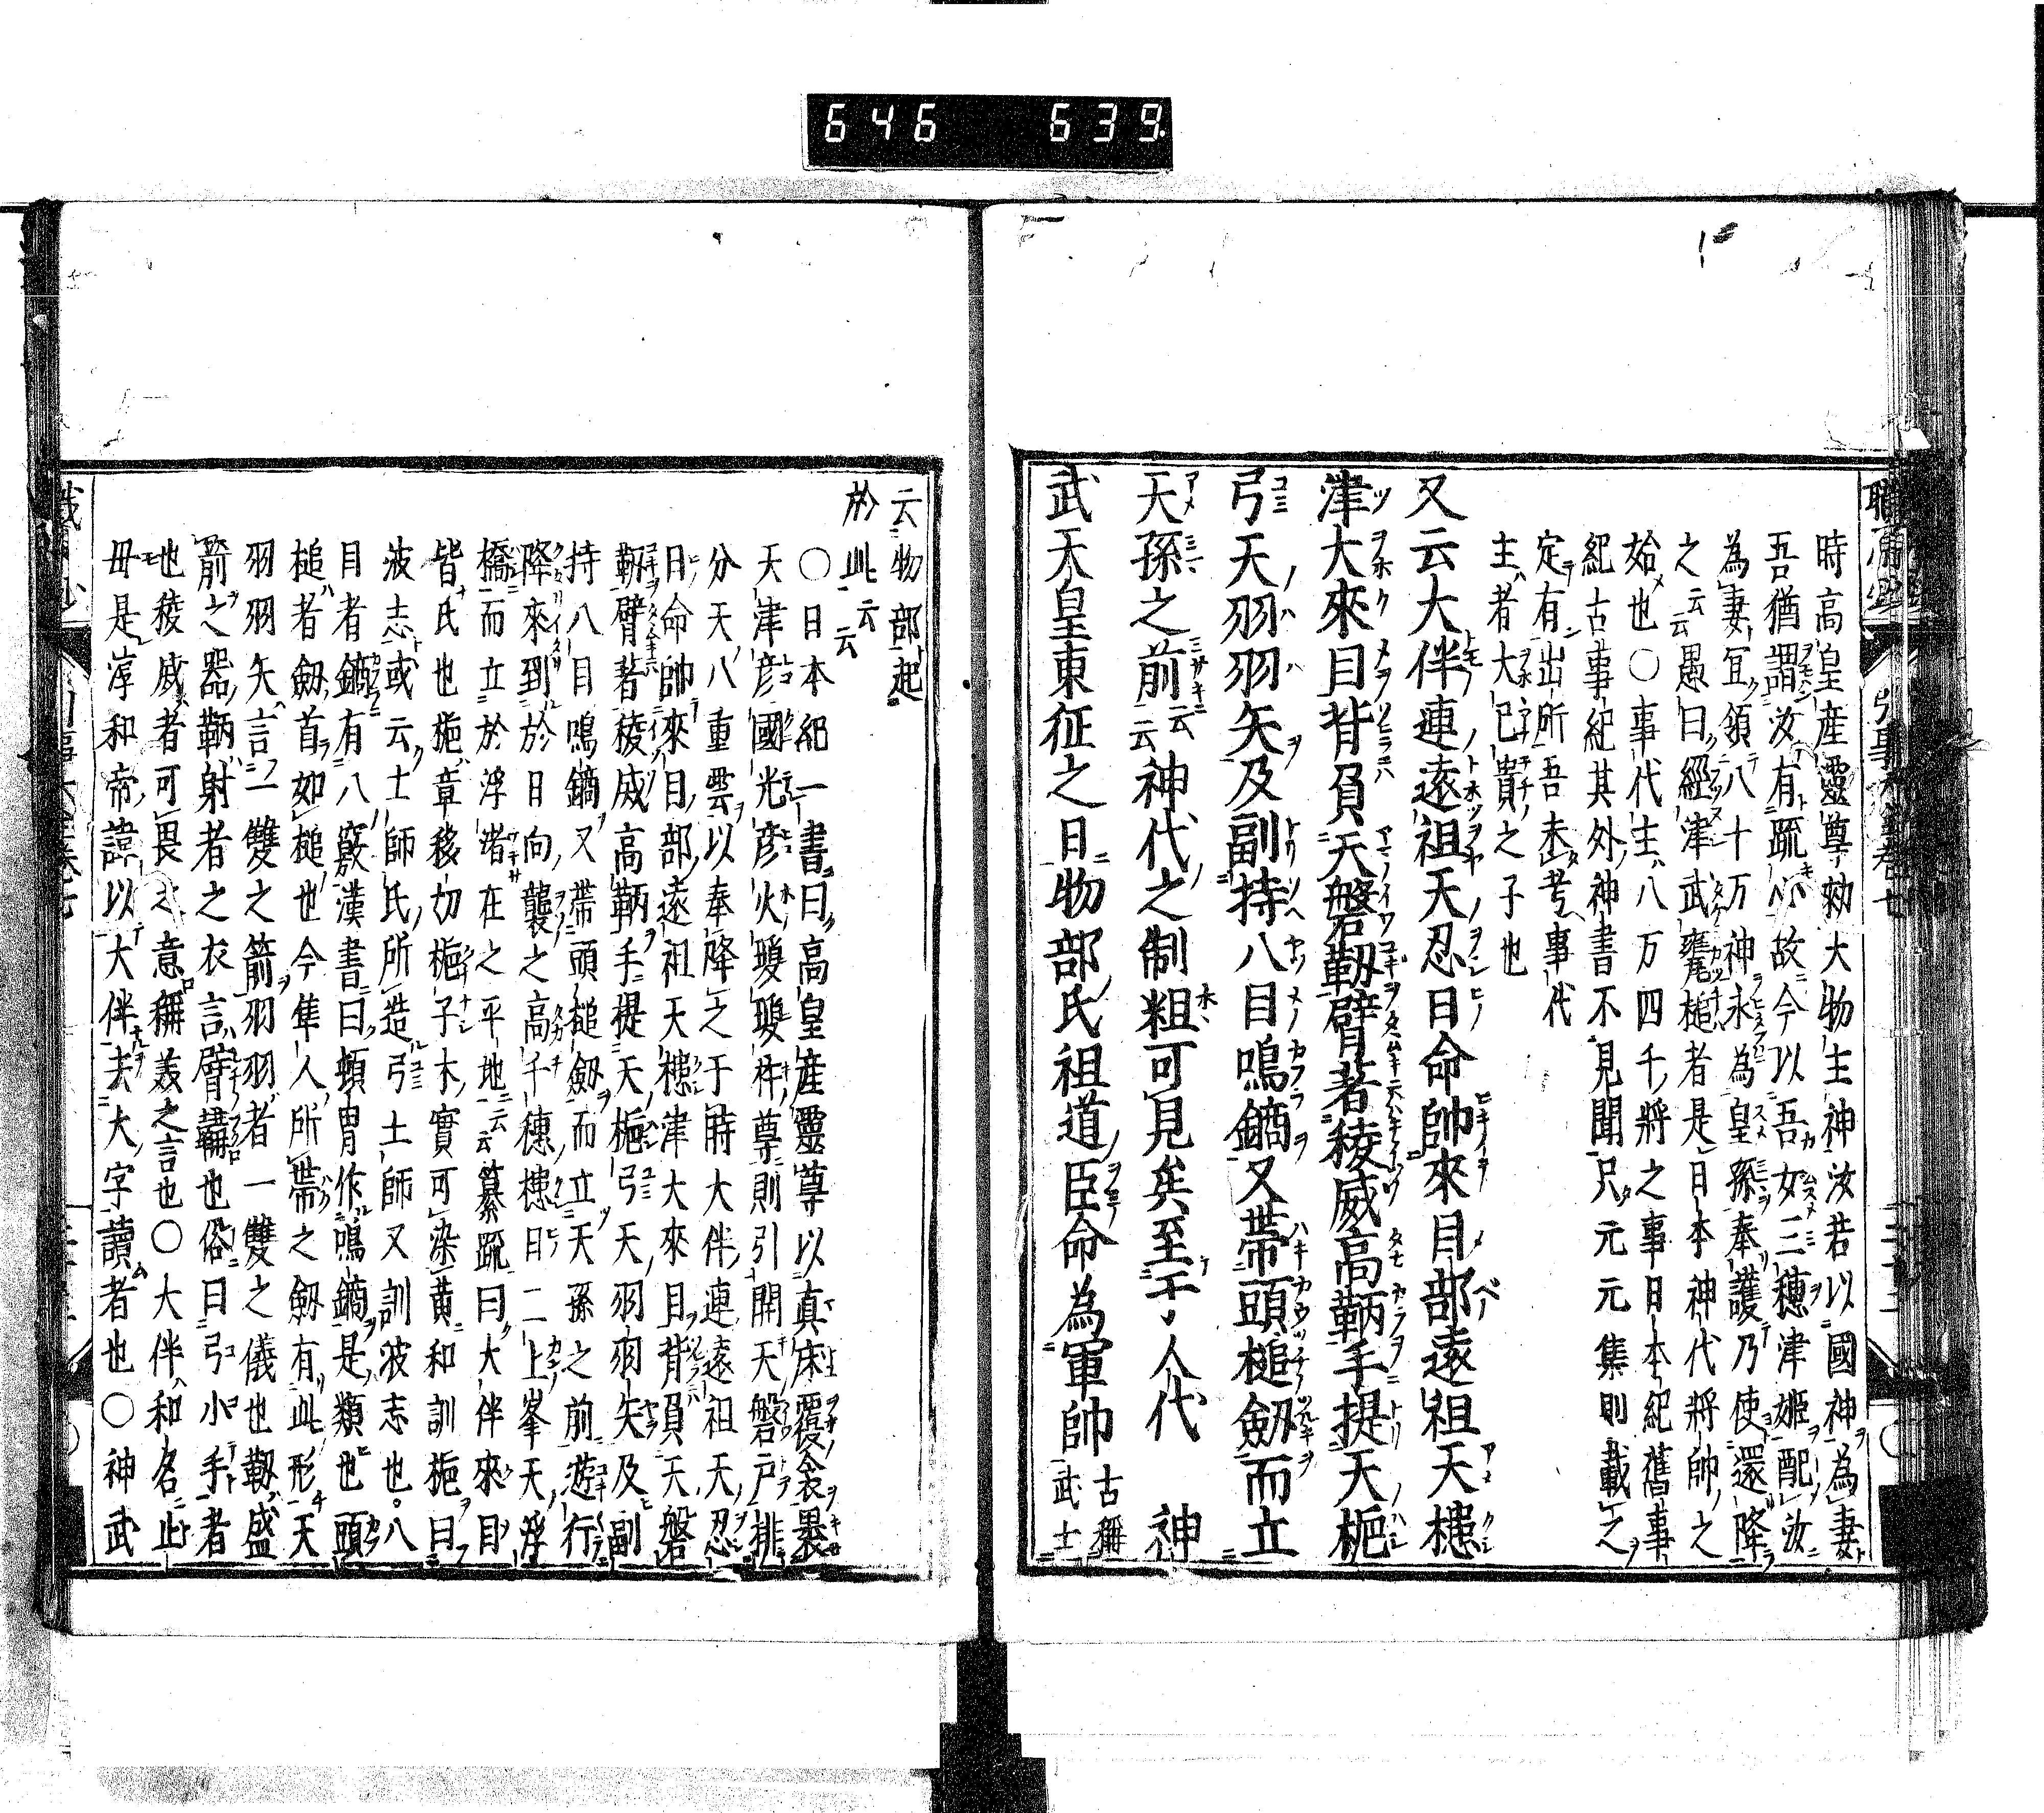 646 639
時高皇産靈尊勅大物主神汝若以國神為妻
吾猶謂汝有疏心故今以吾女三穗津姬配汝
為妻宜領八十万神永為皇孫奉護乃使還降
之云云愚曰經津武甕槌者是日本神代將帥之
始也○事代主八万四千將之事日本紀舊事
紀古事紀其外神書不見聞只元元集則載之
定有出所吾未考事代
主者大已貴之子也
又云大伴連遠祖天忍日命帥來目部遠祖天槵
津大來目背負天磐靫臂著稜威高鞆手提天梔
弓天羽羽矢及副持八目鳴鏑又帶頭槌劔而立
天孫之前云云神代之制粗可見矣至于人代 神
武天皇東征之日物部氏祖道臣命為軍帥古稱武士
云物部起
於此云云
○日本紀一書曰高皇産靈尊以真床覆衾裹
天津彦國光彦火瓊瓊杵尊則引開天磐戸排
分天八重雲以奉降之于時大伴連遠祖天忍
日命帥來目部遠祖天槵津大來目背負天磐
靫臂著稜威高鞆手提天梔弓天羽羽矢及副
持八目鳴鏑又帶頭槌劔而立天孫之前遊行
降來到於日向襲之高千穗槵日二上峯天浮
橋而立於浮渚在之平地云云纂疏曰大伴來目
皆氏也梔章移切梔子木實可染黄和訓梔曰
波志或云土師氏所造弓土師又訓波志也八
目者鏑有八竅漢書曰頓冐作鳴鏑是類也頭
槌者劔首如槌也今隼人所帶之劔有此形天
羽羽矢言一雙之箭羽羽者一雙之儀也靫盛
箭之器鞆射者之衣言臂韝也俗曰弓小手者
也稜威者可畏之意稱美之言也○大伴和名此
毋是淳和帝諱以大伴去大字讀者也○神武